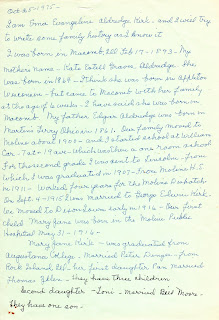 Oct 25-1975-
I am Oma Evangeline Aldridge Kirk- and I will try
to write some family history as I know it
I was born in Macomb, Ill Feb 17-1893- My
mothers name- Kate Estell Broom Aldridge. She
was born in 1869- I think she was born in Appleton
Wisconsin- but came to Macomb with her family
at the age of 6 weeks- I have said she was born in
Macomb. My father Edgar Aldridge was born in
Martins Ferry Ohio in 1861. Our family moved to
Moline about 1900- and I started school at William
Carr- 7 at- Ave- which was then a one room school
For thousand grade I was sent to Lincoln- from
which I was graduated in 1907- From Moline H.S
in 1911- Worked four years for the Moline Dispatch
On Sept 4-1915 I was married to George Elvin Kirk.
We moved to in 1916- Our first
child Mary Jane was born in the Moline Public
Hospital May 31-1916-
Mary Jane Kirk- was graduated from
Augustana College. Married Peter - from
Rock Island Ill- her first daughter Pam married
Thomas - they have three children
Second daughter- Toni- Married Reid Moore-
They have one son-